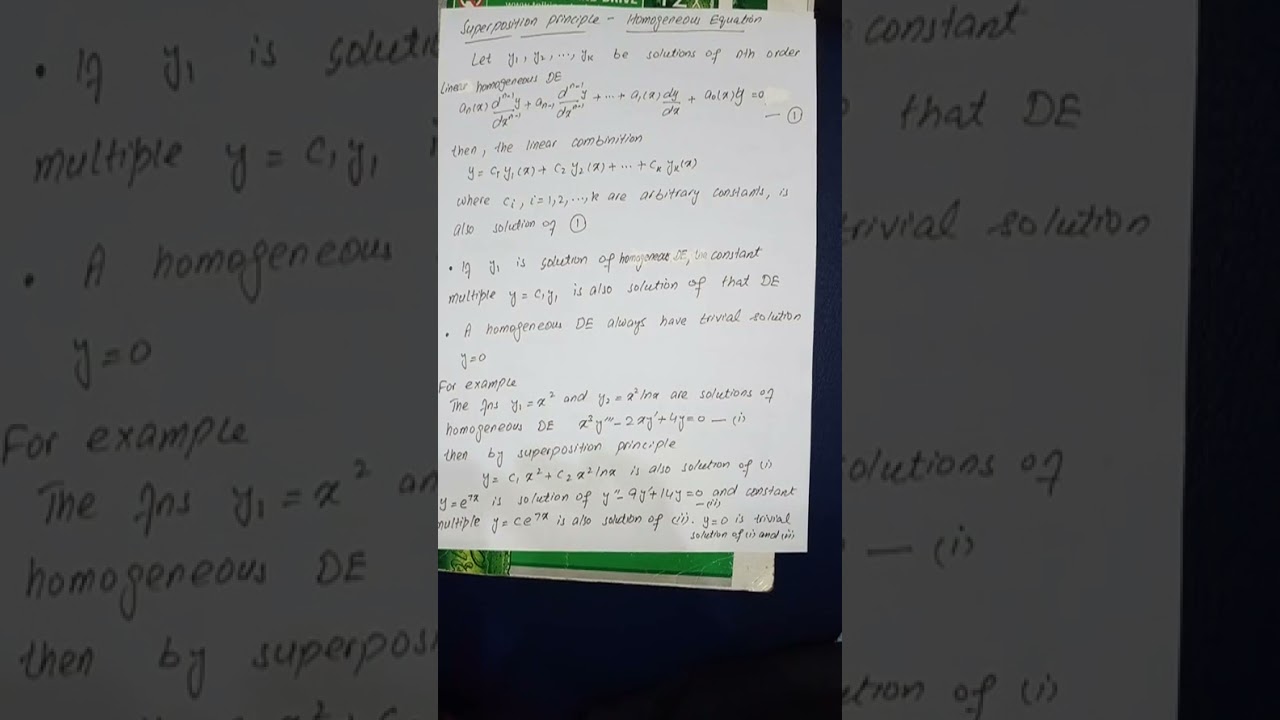 Superposition principle - Homogeneous Equation
Let y₁, y₂, ..., yₖ be solutions of nth order
Linear homogeneous DE
aₙ(x) dⁿ⁻¹y/dxⁿ⁻¹ + aₙ₋₁ dⁿ⁻¹y/dxⁿ⁻¹ + ... + a₁(x) dy/dx + a₀(x)y = 0
— ①
then, the linear combinition
y = c₁ y₁(x) + c₂ y₂(x) + ... + cₖ yₖ(x)
where cᵢ, i=1,2,...,k are arbitrary constants, is
also solution of ①
• If y₁ is solution of homogeneous DE, the constant
multiple y = c₁y₁ is also solution of that DE
• A homogeneous DE always have trivial solution
y=0
For example
The fns y₁=x² and y₂=x²lnx are solutions of
homogeneous DE x³y'''-2xy'+4y=0 — (i)
then by superposition principle
y = c₁x²+c₂x²lnx is also solution of (i)
y=e⁷ˣ is solution of y''-9y'+14y=0 and constant
—(ii)
multiple y=ce⁷ˣ is also solution of (ii). y=0 is trivial
solution of (i) and (ii)
• If y₁ is
constant
multiple y = c₁y₁
that DE
• A homogeneous
trivial solution
y=0
For example
The fns y₁ = x²
solutions of
homogeneous DE
— (i)
then by
of (i)